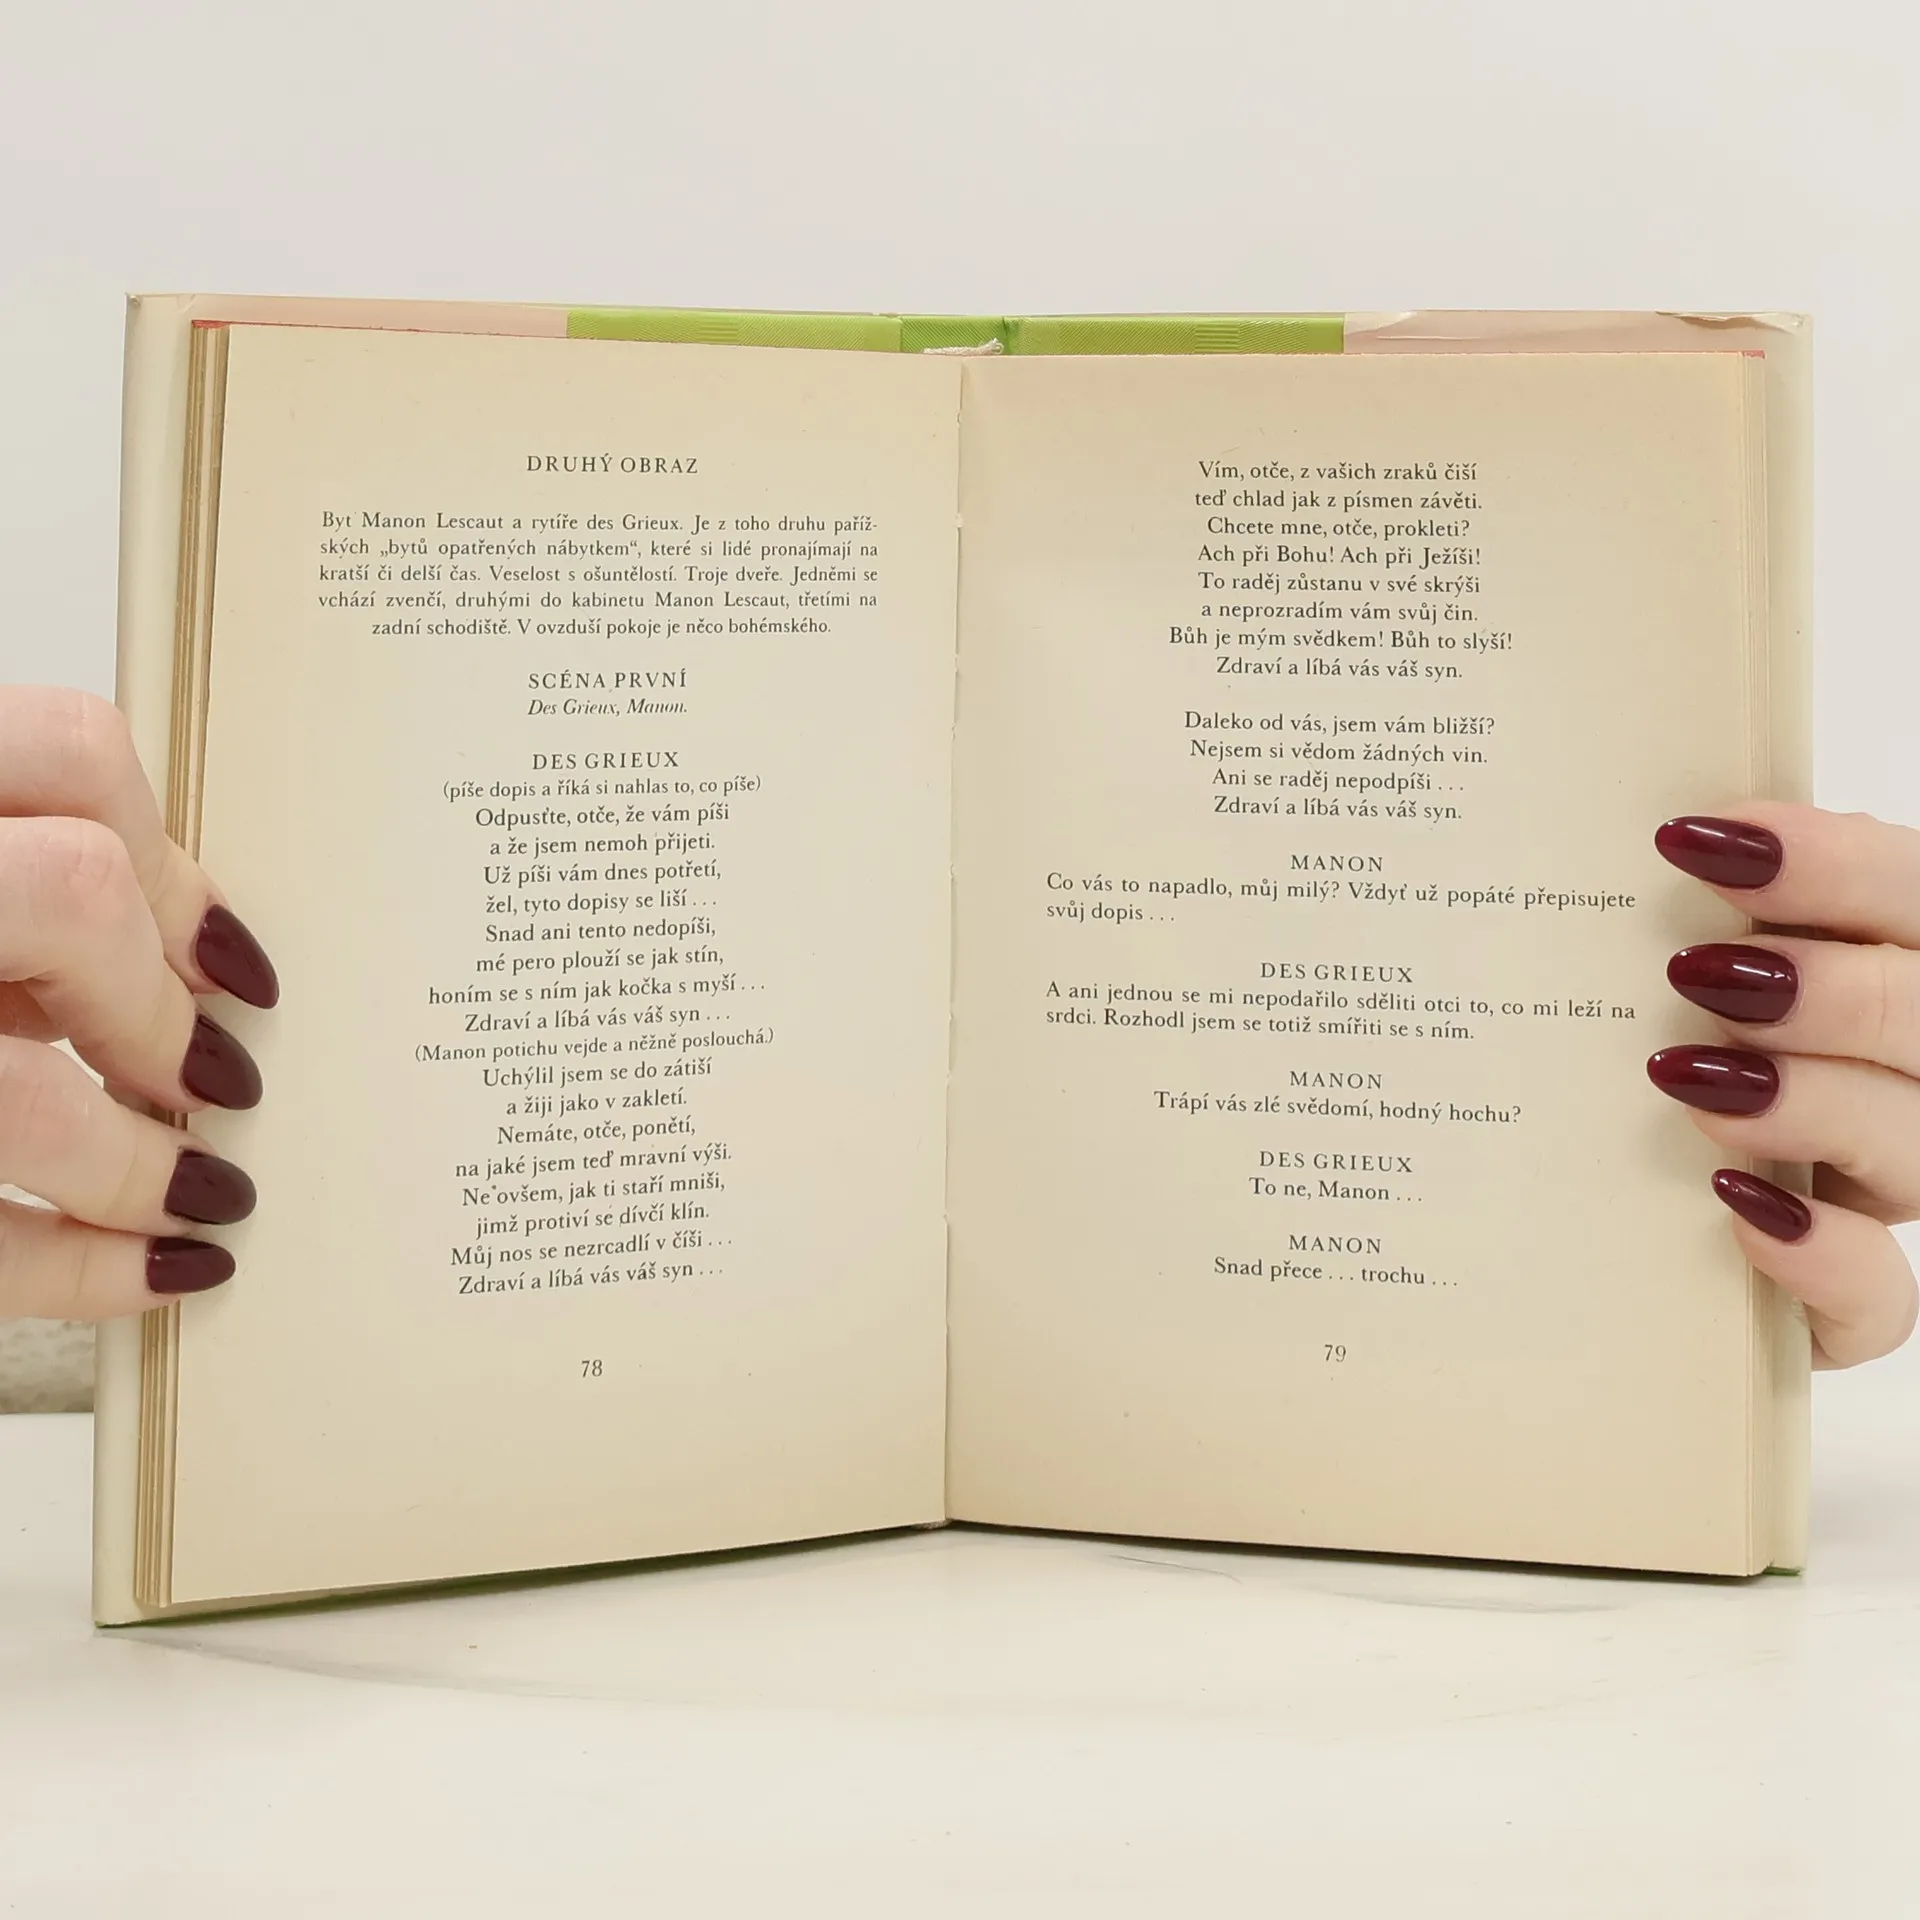 DRUHÝ OBRAZ
Byt Manon Lescaut a rytíře des Grieux. Je z toho druhu paříž-
ských „bytů opatřených nábytkem“, které si lidé pronajímají na
kratší či delší čas. Veselost s ošuntělostí. Troje dveře. Jedněmi se
vchází zvenčí, druhými do kabinetu Manon Lescaut, třetími na
zadní schodiště. V ovzduší pokoje je něco bohémského.
SCÉNA PRVNÍ
Des Grieux, Manon.
DES GRIEUX
(píše dopis a říká si nahlas to, co píše)
Odpusťte, otče, že vám píši
a že jsem nemoh přijeti.
Už píši vám dnes potřetí,
žel, tyto dopisy se liší . . .
Snad ani tento nedopíši,
mé pero plouží se jak stín,
honím se s ním jak kočka s myší . . .
Zdraví a líbá vás váš syn . . .
(Manon potichu vejde a něžně poslouchá.)
Uchýlil jsem se do zátiší
a žiji jako v zakletí.
Nemáte, otče, ponětí,
na jaké jsem teď mravní výši.
Ne ovšem, jak ti staří mniši,
jimž protiví se dívčí klín.
Můj nos se nezrcadlí v číši . . .
Zdraví a líbá vás váš syn . . .
78
Vím, otče, z vašich zraků čiší
teď chlad jak z písmen závěti.
Chcete mne, otče, prokleti?
Ach při Bohu! Ach při Ježíši!
To raděj zůstanu v své skrýši
a neprozradím vám svůj čin.
Bůh je mým svědkem! Bůh to slyší!
Zdraví a líbá vás váš syn.
Daleko od vás, jsem vám bližší?
Nejsem si vědom žádných vin.
Ani se raděj nepodpíši . . .
Zdraví a líbá vás váš syn.
MANON
Co vás to napadlo, můj milý? Vždyť už popáté přepisujete
svůj dopis . . .
DES GRIEUX
A ani jednou se mi nepodařilo sděliti otci to, co mi leží na
srdci. Rozhodl jsem se totiž smířiti se s ním.
MANON
Trápí vás zlé svědomí, hodný hochu?
DES GRIEUX
To ne, Manon . . .
MANON
Snad přece . . . trochu . . .
79